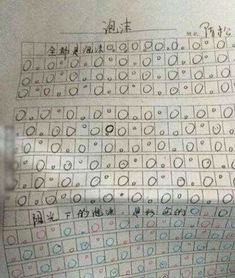 泡沫
全都是泡沫
阳光下的泡沫 是彩色的